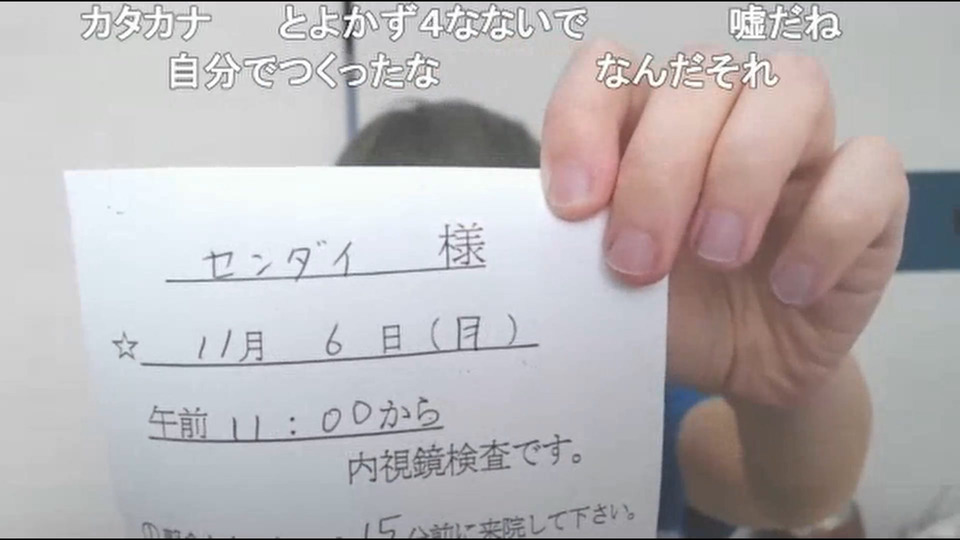 カタカナ とよかず4なないで 嘘だね
自分でつくったな なんだそれ
センダイ 様
☆ 11月 6日(月)
午前 11:00から
内視鏡検査です。
15分前に来院して下さい。